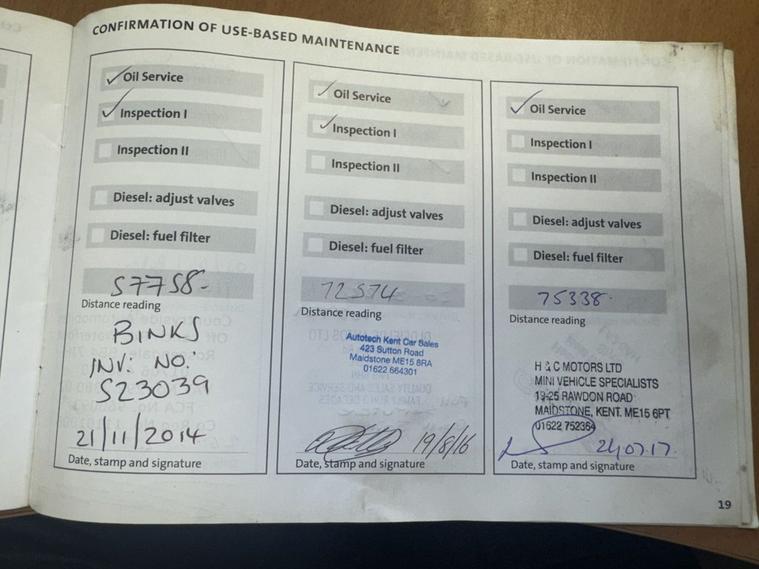 CONFIRMATION OF USE-BASED MAINTENANCE
Oil Service
Inspection I
Inspection II
Diesel: adjust valves
Diesel: fuel filter
57758-
Distance reading
BINKS
INV: NO:
S23039
21/11/2014
Date, stamp and signature
Oil Service
Inspection I
Inspection II
Diesel: adjust valves
Diesel: fuel filter
72574
Distance reading
Autotech Kent Car Sales
423 Sutton Road
Maidstone ME15 8RA
01622 664301
19/8/16
Date, stamp and signature
Oil Service
Inspection I
Inspection II
Diesel: adjust valves
Diesel: fuel filter
75338.
Distance reading
H & C MOTORS LTD
MINI VEHICLE SPECIALISTS
19-25 RAWDON ROAD
MAIDSTONE, KENT. ME15 6PT
01622 752364
24.07.17.
Date, stamp and signature
19